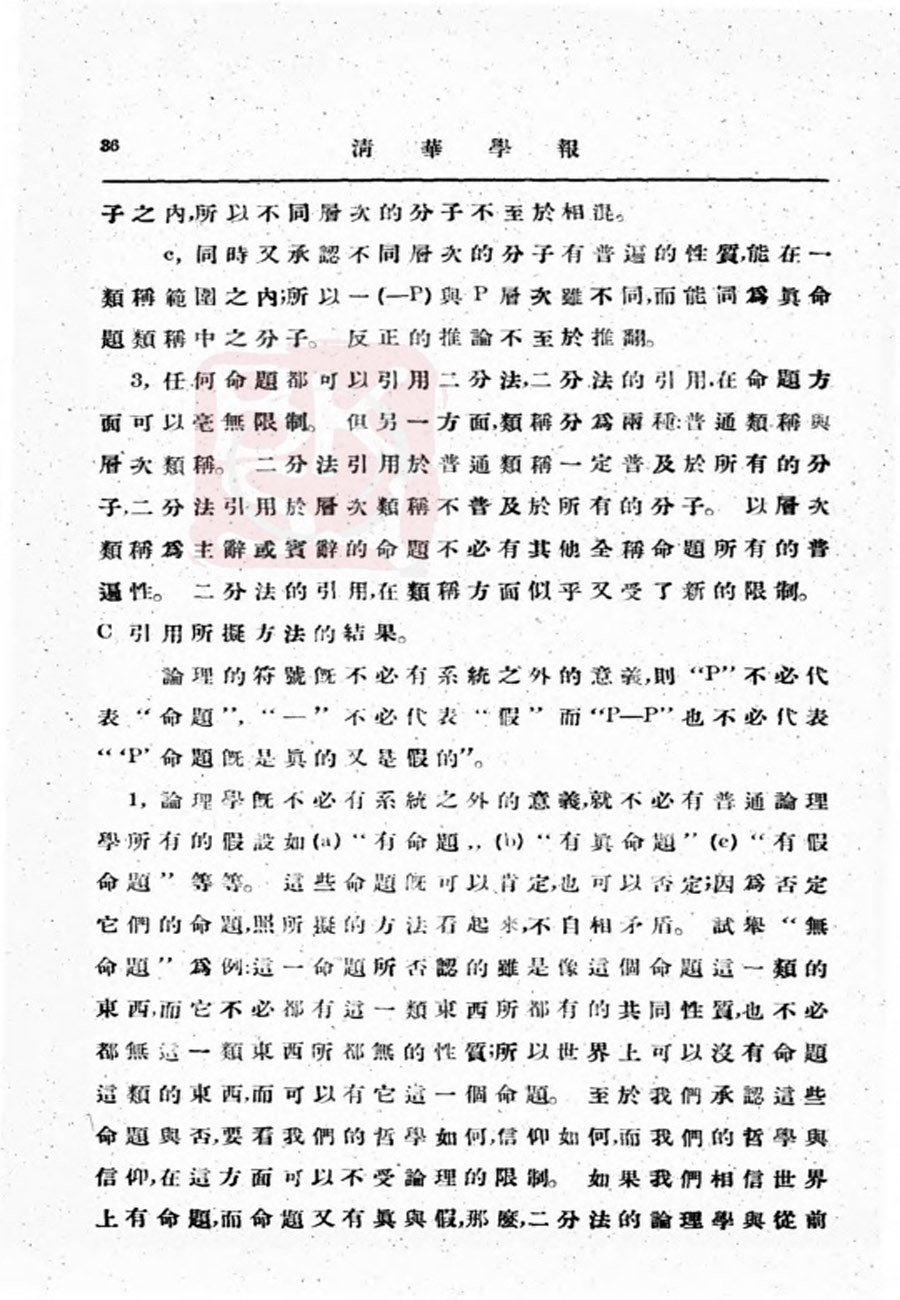 36 清華學報
子之內,所以不同層次的分子不至於相混。
c, 同時又承認不同層次的分子有普遍的性質,能在一
類稱範圍之內;所以—(—P)與P層次雖不同,而能同爲眞命
題類稱中之分子。 反正的推論不至於推翻。
3, 任何命題都可以引用二分法,二分法的引用,在命題方
面可以毫無限制。 但另一方面,類稱分爲兩種:普通類稱與
層次類稱。 二分法引用於普通類稱一定普及於所有的分
子,二分法引用於層次類稱不普及於所有的分子。 以層次
類稱爲主辭或賓辭的命題不必有其他全稱命題所有的普
遍性。 二分法的引用,在類稱方面似乎又受了新的限制。
C 引用所擬方法的結果。
論理的符號旣不必有系統之外的意義,則“P”不必代
表“命題”, “—”不必代表“假”而“P—P”也不必代表
“‘P’命題旣是眞的又是假的”。
1, 論理學旣不必有系統之外的意義,就不必有普通論理
學所有的假設如(a)“有命題,, (b)“有眞命題”(c)“有假
命題”等等。 這些命題旣可以肯定,也可以否定;因爲否定
它們的命題,照所擬的方法看起來,不自相矛盾。 試舉“無
命題”爲例:這一命題所否認的雖是像這個命題這一類的
東西,而它不必都有這一類東西所都有的共同性質,也不必
都無這一類東西所都無的性質;所以世界上可以沒有命題
這類的東西,而可以有它這一個命題。 至於我們承認這些
命題與否,要看我們的哲學如何,信仰如何,而我們的哲學與
信仰,在這方面可以不受論理的限制。 如果我們相信世界
上有命題,而命題又有眞與假,那麼,二分法的論理學與從前